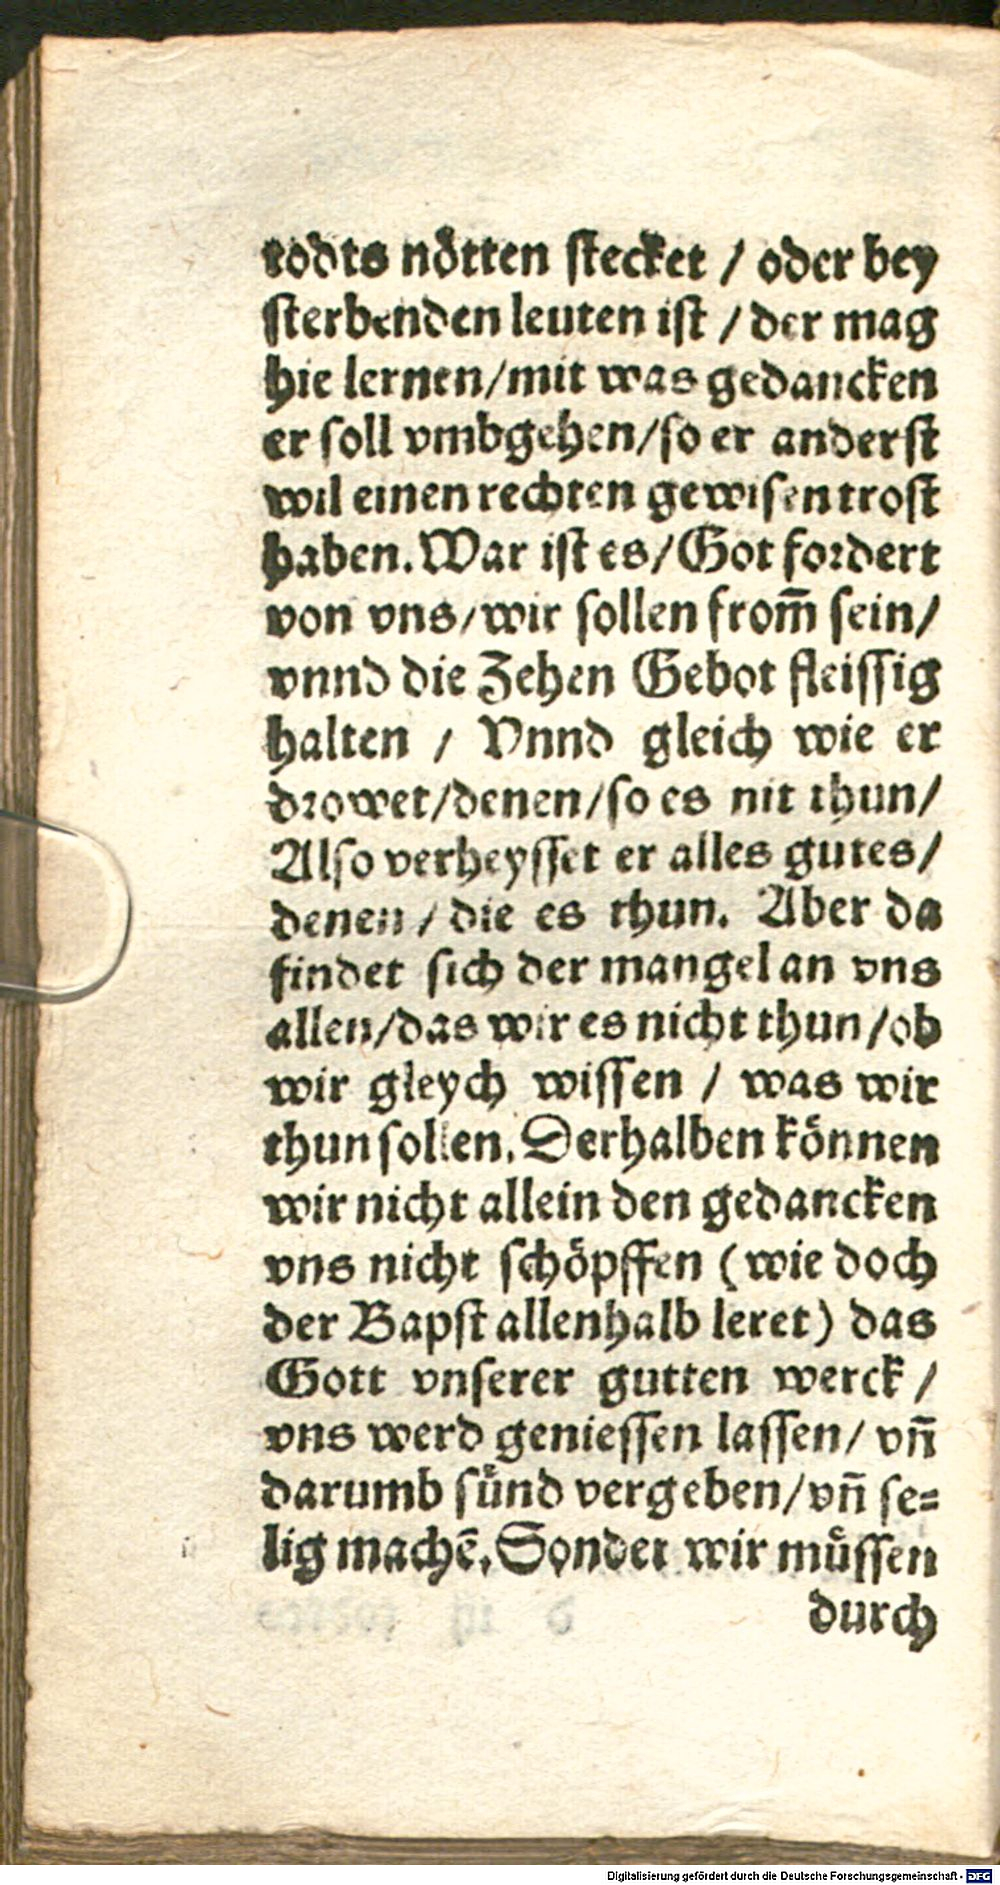 todts nötten stecket / oder bey
sterbenden leuten ist / der mag
hie lernen/mit was gedancken
er soll vmbgehen/so er anderst
wil einen rechten gewisen trost
haben. War ist es/Got fordert
von vns/wir sollen from̃ sein/
vnnd die Zehen Gebot fleissig
halten / Vnnd gleich wie er
drowet/denen/so es nit thun/
Also verheysset er alles gutes/
denen / die es thun. Aber da
findet sich der mangel an vns
allen/das wir es nicht thun/ob
wir gleych wissen / was wir
thun sollen. Derhalben können
wir nicht allein den gedancken
vns nicht schöpffen (wie doch
der Bapst allenhalb leret) das
Gott vnserer gutten werck /
vns werd geniessen lassen/ vñ
darumb sünd vergeben/vñ se=
lig machẽ. Sonder wir müssen
durch
Digitalisierung gefördert durch die Deutsche Forschungsgemeinschaft - DFG